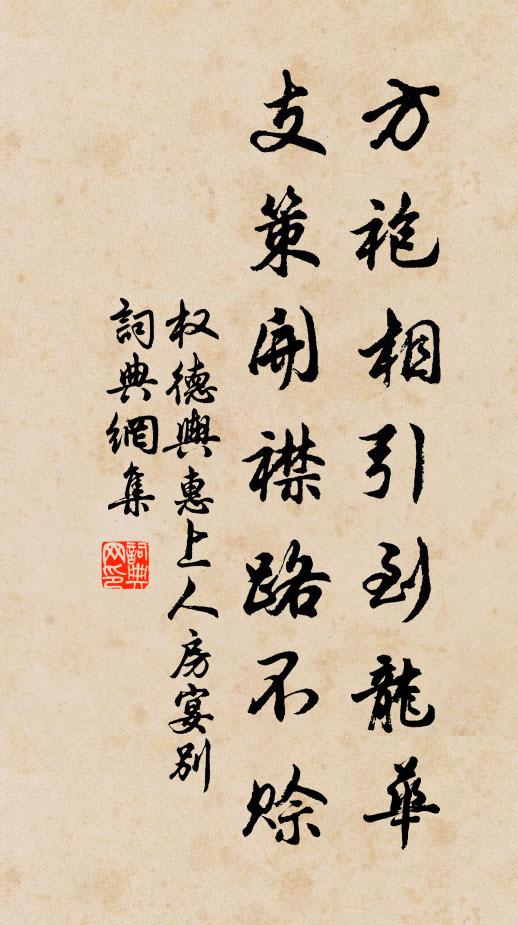 方袍相引到龍華
支策開襟路不賒
权德輿惠上人房宴别
詞典網集
詞典网印